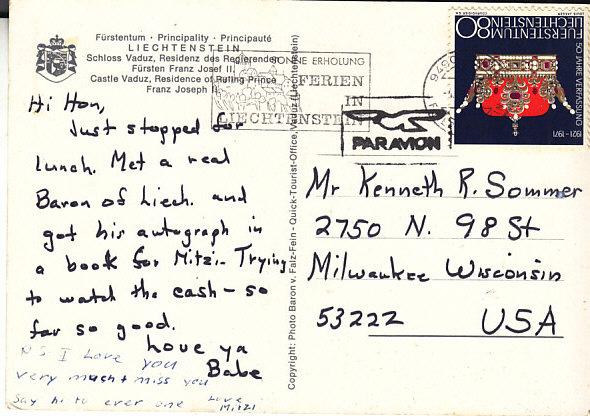 Fürstentum · Principality · Principauté
LIECHTENSTEIN
Schloss Vaduz, Residenz des Regierenden
Fürsten Franz Josef II.
Castle Vaduz, Residence of Ruling Prince
Franz Joseph II.
Hi Hon,
Just stopped for
lunch. Met a real
Baron of Liech. and
got his autograph in
a book for Mitzi - Trying
to watch the cash - so
far so good.
Love ya
Babe
PS I Love you
very much + miss you
Say hi to ever one Love
Mitzi
Copyright: Photo Baron v. Falz-Fein - Quick-Tourist-Office, Vaduz (Liechtenstein)
SONNE ERHOLUNG
FERIEN
IN
LIECHTENSTEIN
PAR AVION
FÜRSTENTUM 80
LIECHTENSTEIN
50 JAHRE VERFASSUNG
1921-1971
Mr Kenneth R. Sommer
2750 N. 98 St
Milwaukee Wisconsin
53222 USA